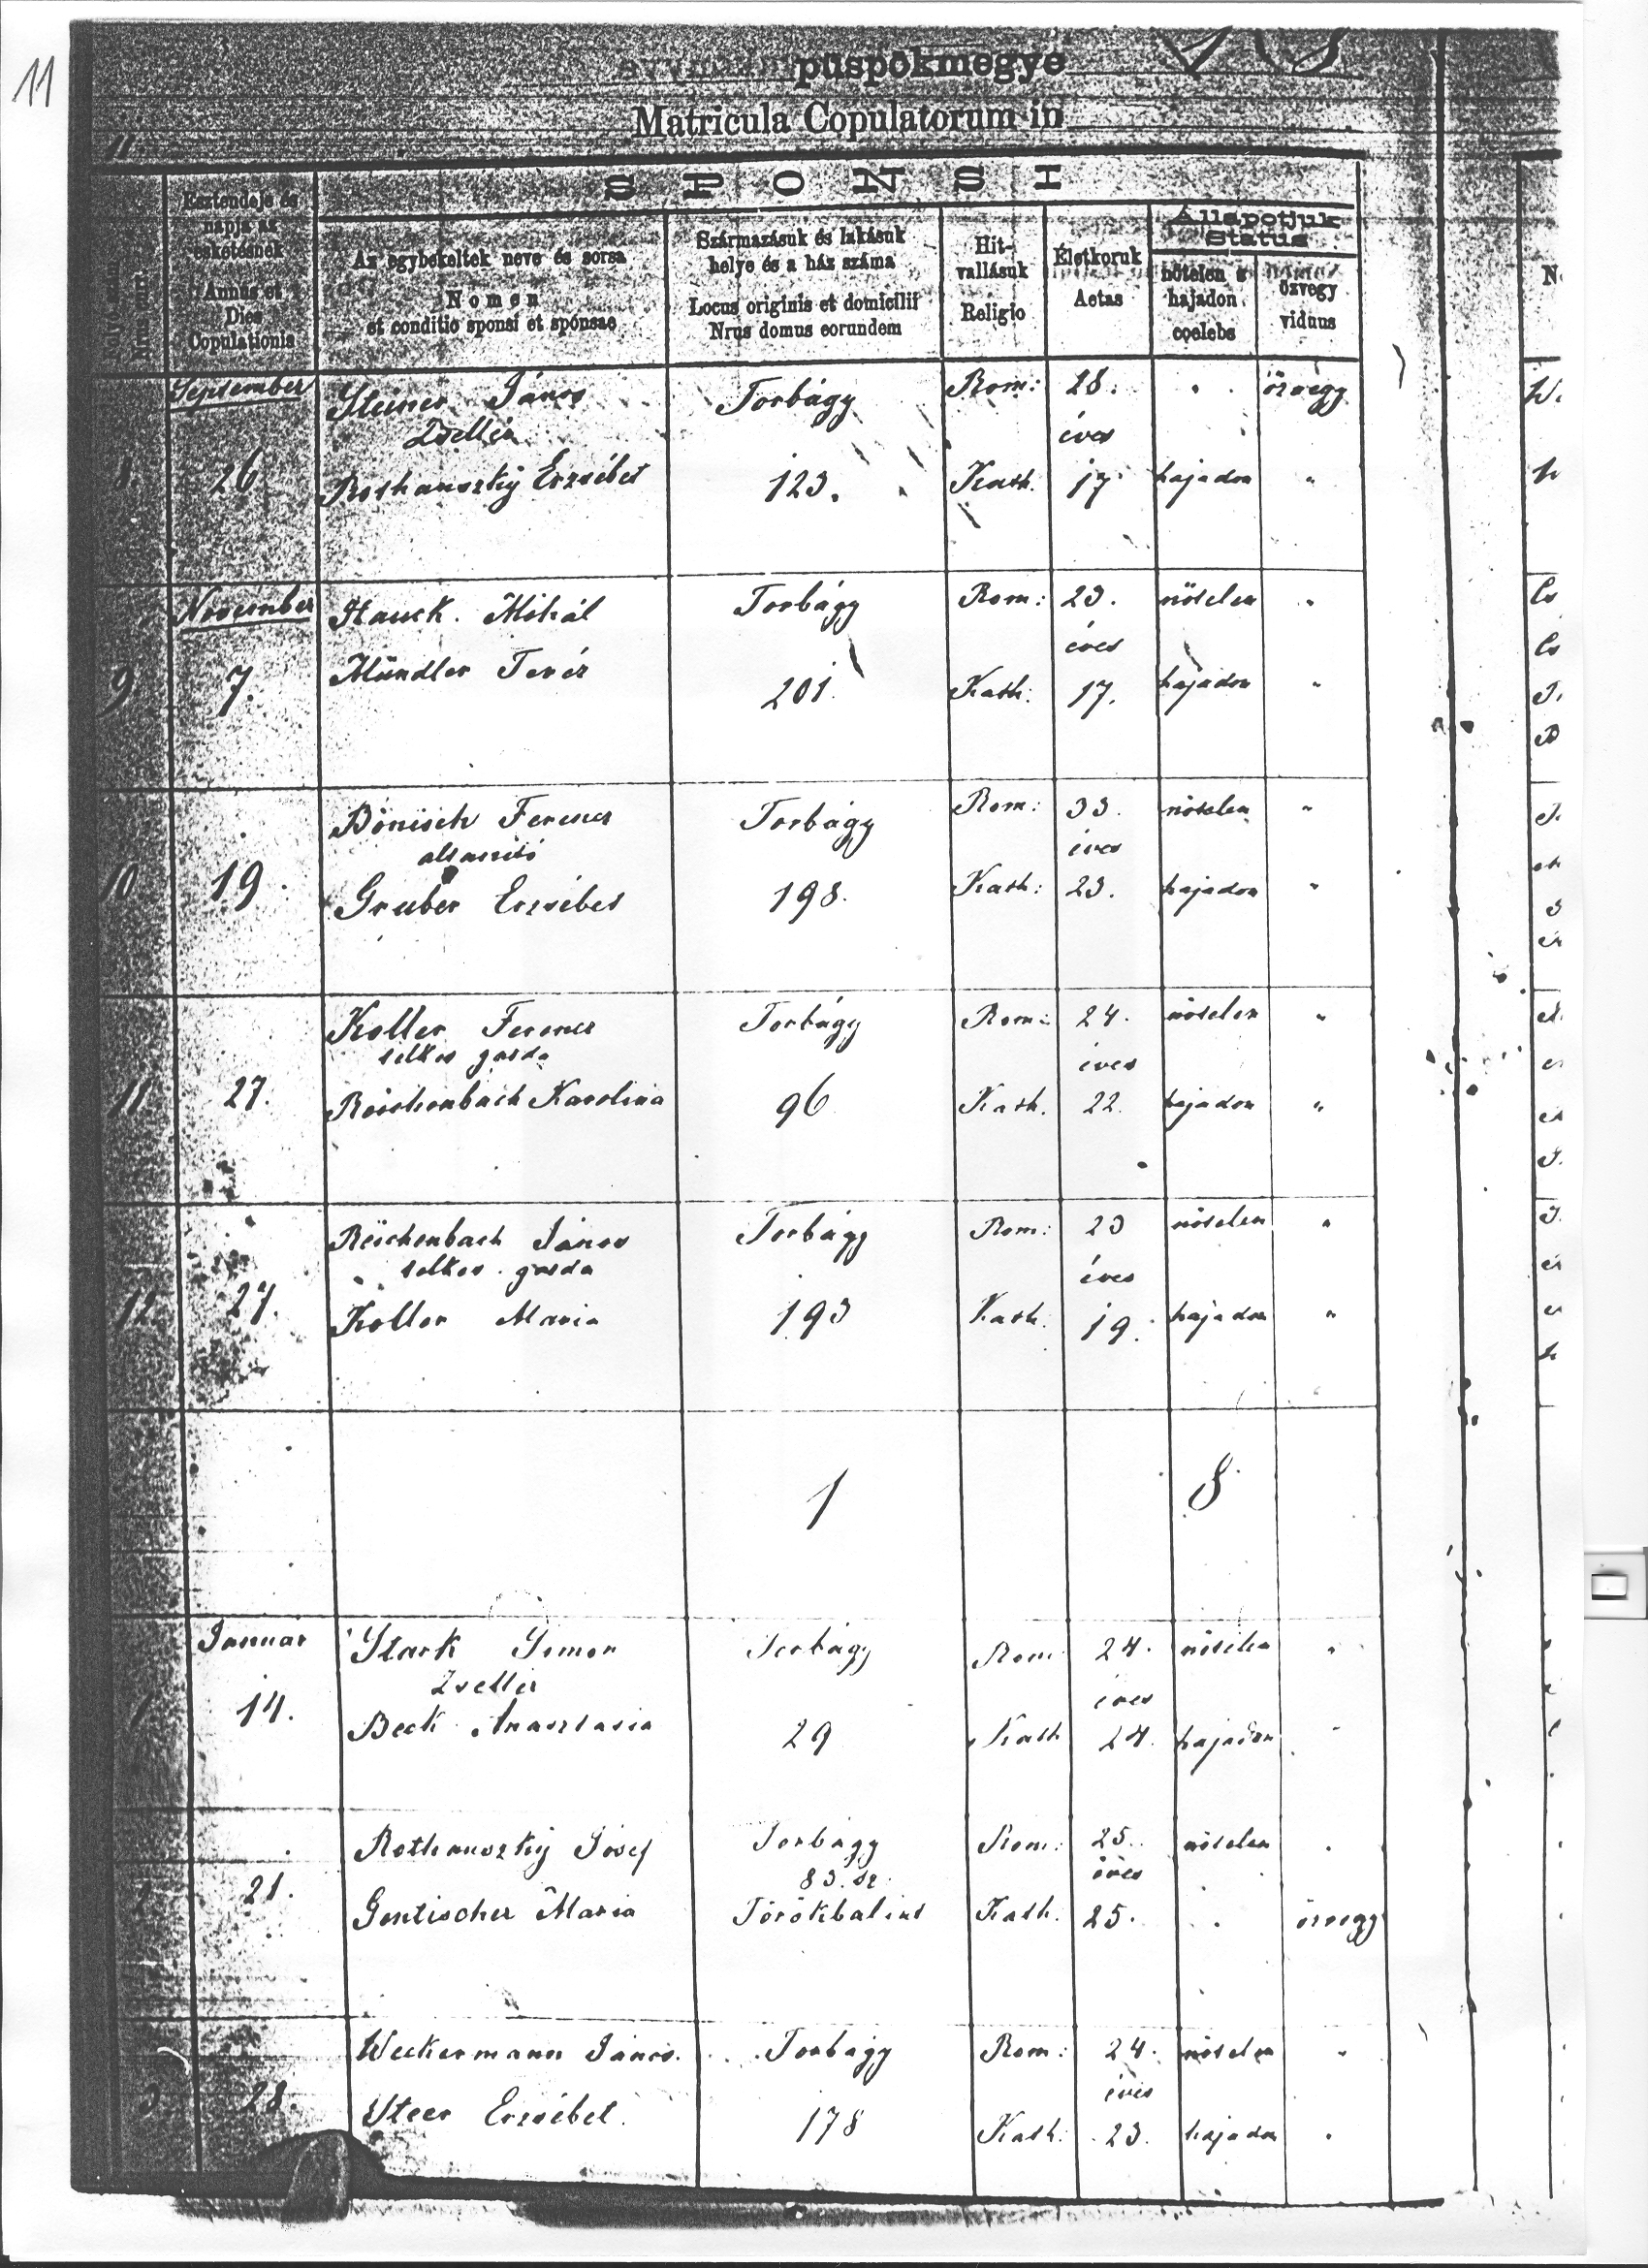 11
püspökmegye
Matricula Copulatorum in
11.
SPONSI
Esztendeje és napja az esketésnek
Annus et Dies Copulationis
Az egybekeltek neve és sorsa
Nomen et conditio sponsi et sponsae
Származásuk és lakásuk helye és a ház száma
Locus originis et domicilii Nrus domus eorundem
Hitvallásuk
Religio
Életkoruk
Aetas
Állapotjuk
Status
nőtelen s hajadon
coelebs
özvegy
viduus
September Steiner János Torbágy Rom: 28. özvegy
Zsellér éves
8. 26 Rothanszky Erzsébet 123. Kath. 17 hajadon "
November Hauck Mihál Torbágy Rom: 23. nőtelen "
éves
9 7. Mündler Teréz 201. Kath: 17. hajadon "
Bönisch Ferencz Torbágy Rom: 33. nőtelen "
éves
10 19. Gruber Erzsébet 198. Kath: 23. hajadon "
Koller Ferencz Torbágy Rom: 24. nőtelen "
telkes gazda éves
11 27. Reichenbach Karolina 96 Kath. 22. hajadon "
Reichenbach János Torbágy Rom: 23 nőtelen "
telkes gazda éves
12. 27. Koller Maria 193 Kath. 19. hajadon "
1 8
Januar Stark Simon Torbágy Rom 24. nőtelen "
Zsellér éves
1 14. Beck Anasztasia 29 Kath 24. hajadon "
Rothanszky Josef Torbágy Rom: 25. nőtelen
83. sz. éves
21. Gentischer Maria Törökbalint Kath. 25. özvegy
Weckermann János Torbágy Rom: 24. nőtelen "
éves
3 28. Steer Erzsébet 178 Kath: 23. hajadon "